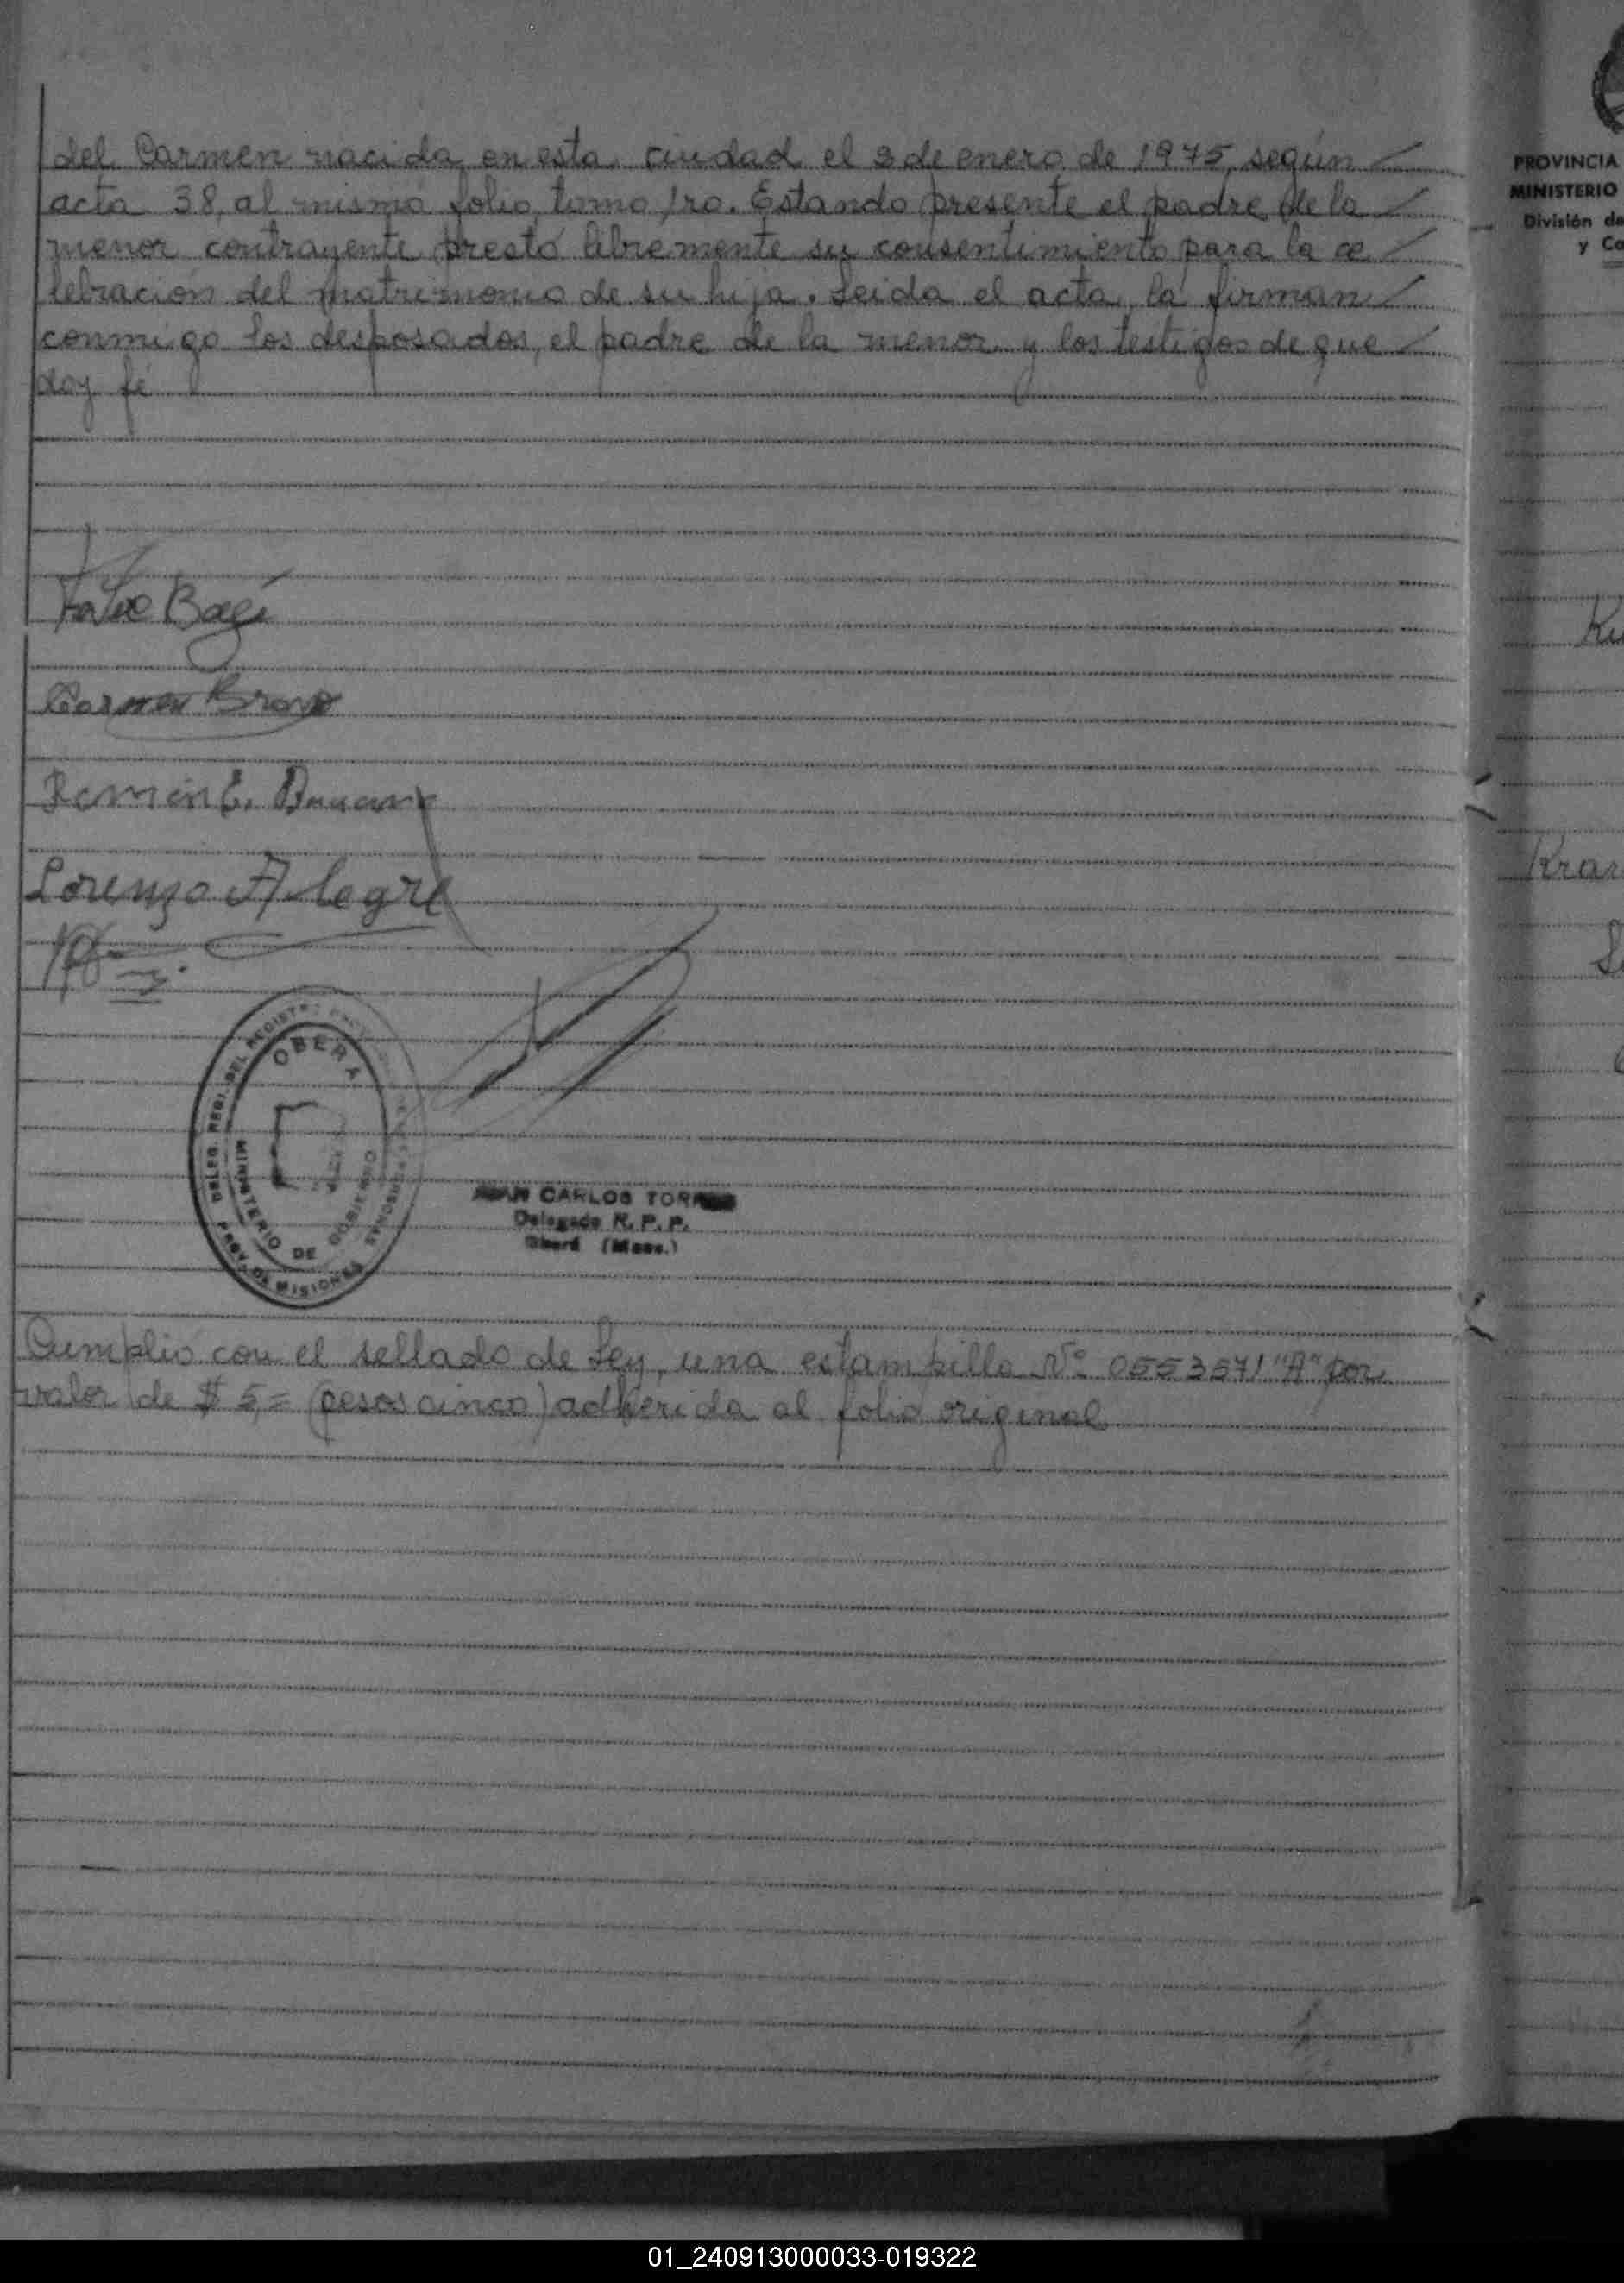 del Carmen nacida en esta ciudad el 3 de enero de 1975, según
acta 38, al mismo folio, tomo 1ro. Estando presente el padre de la
menor contrayente prestó libremente su consentimiento para la ce
lebración del matrimonio de su hija. Leida el acta, la firman
conmigo los desposados, el padre de la menor y los testigos de que
doy fé
Carmen Bravo
Lorenzo Alegre
DELEG. REGI. DEL REGISTRO
OBERA
MINISTERIO DE GOBIERNO
PROV. DE MISIONES
JUAN CARLOS TORRES
Delegado R. P. P.
Oberá (Mnes.)
Cumplió con el sellado de Ley, una estampilla Nº 0553571 "A" por
valor de $ 5,= (pesos cinco) adherida al folio original
PROVINCIA
MINISTERIO
División de
y Co
Kra
01_240913000033-019322